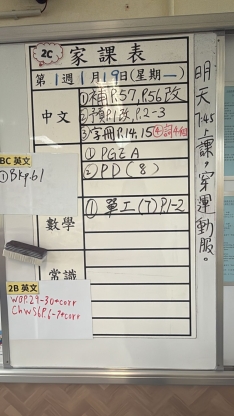 2C 家課表
第1週1月19日(星期一)
中文
①補P.57,P.56改
②預P.1改,P.2-3
③字冊P.14,15 ④詞4組
①PGEA
②PD(8)
BC 英文
①Bkp.61
數學
①單工(7)P.1-2
常識
2B 英文
WBP.29-30+corr
ChWS6P.6-7+corr
明天7:45上課,穿運動服。